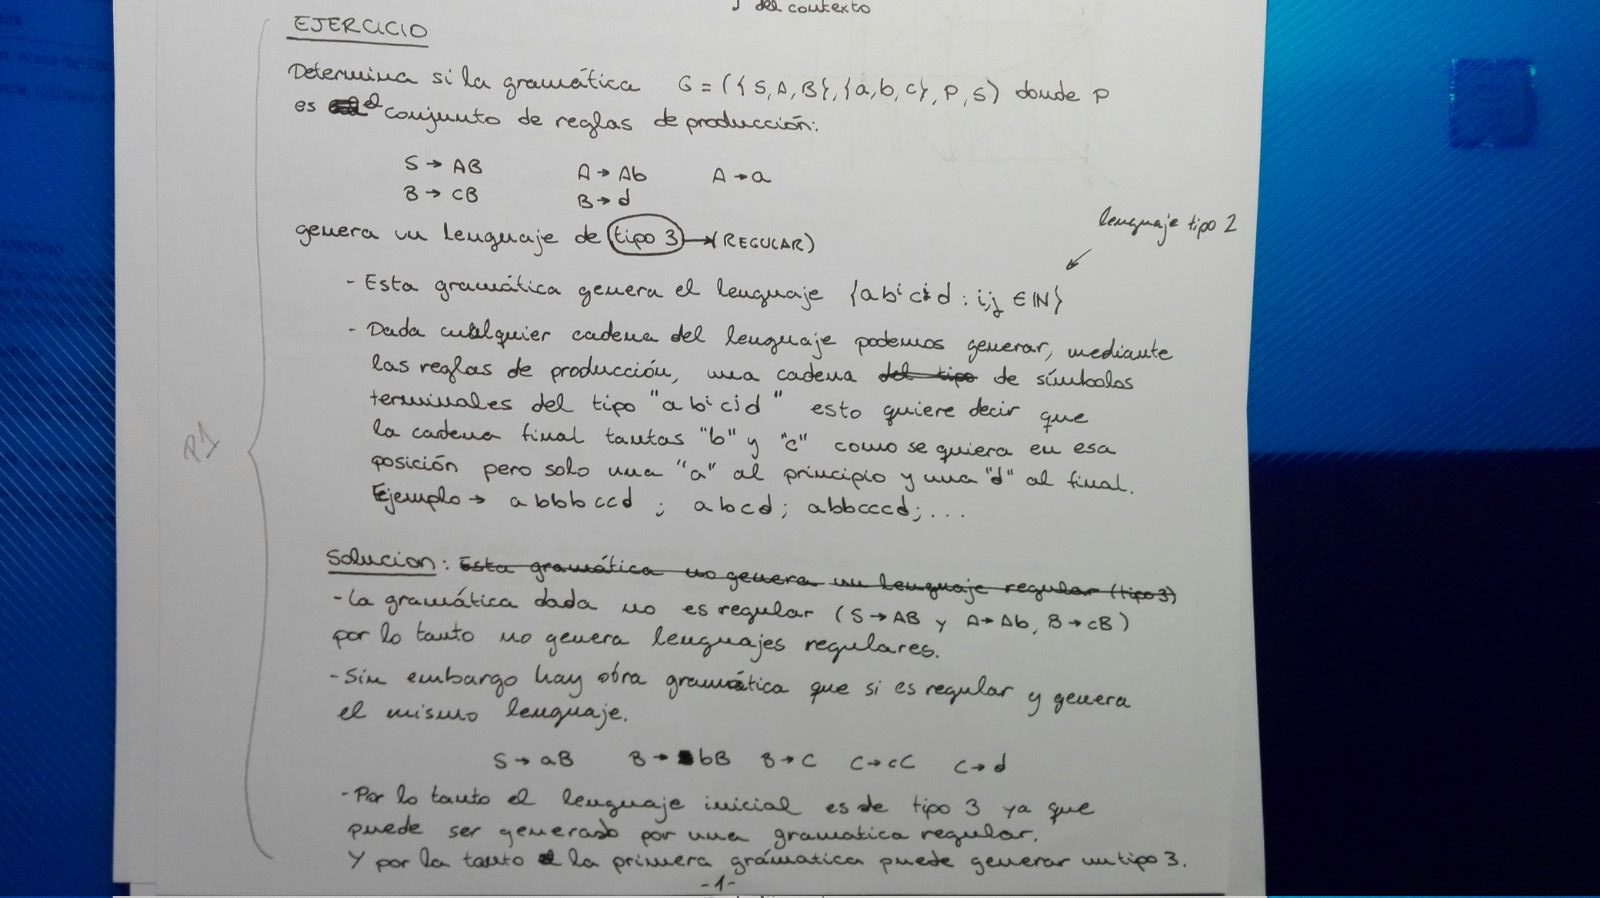 del contexto
EJERCICIO
Determina si la gramática G = ({S,A,B},{a,b,c},P,S) donde P
es el conjunto de reglas de producción:
S → AB A → Ab A → a
B → cB B → d
genera un lenguaje de tipo 3 → (REGULAR)
lenguaje tipo 2
- Esta gramática genera el lenguaje {abⁱcʲd : i,j ∈ IN}
- Dada cualquier cadena del lenguaje podemos generar, mediante
las reglas de producción, una cadena del tipo de símbolos
terminales del tipo "a bⁱ cʲd" esto quiere decir que
la cadena final tantas "b" y "c" como se quiera en esa
posición pero solo una "a" al principio y una "d" al final.
Ejemplo → abbbccd ; abcd; abbcccd; ...
Solucion: Esta gramática no genera un lenguaje regular (tipo 3)
- La gramática dada no es regular (S → AB y A → Ab, B → cB)
por lo tanto no genera lenguajes regulares.
- Sin embargo hay otra gramática que si es regular y genera
el mismo lenguaje.
S → aB B → bB B → C C → cC C → d
- Por lo tanto el lenguaje inicial es de tipo 3 ya que
puede ser generado por una gramatica regular.
Y por la tanto la primera grámatica puede generar un tipo 3.
P1
-1-